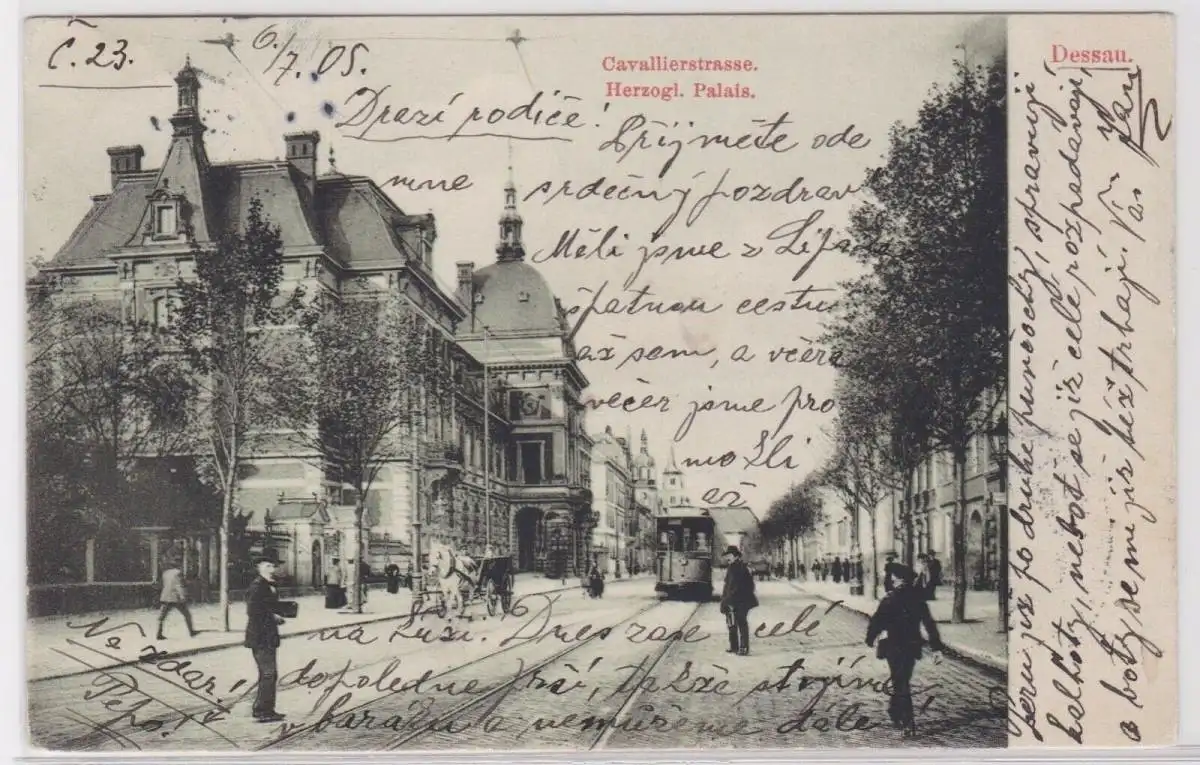 Č. 23.
6./7. 05.
Cavallierstrasse.
Herzogl. Palais.
Dessau.
Drazí rodiče!
Přijměte ode
mne srdečný pozdrav
Měli jsme z
špatnou cestu
až sem, a včera
večer jsme pro
mokli
až
na kůži. Dnes zase celé
dopoledne prší, takže stojíme
v baráku a nemůžeme dále!
Na zdar!
Pepo!
již po druhé punčochy, spravuji
kalhoty, nebot se již celé rozpadávají,
a boty se mi již též trhají. Váš Jan